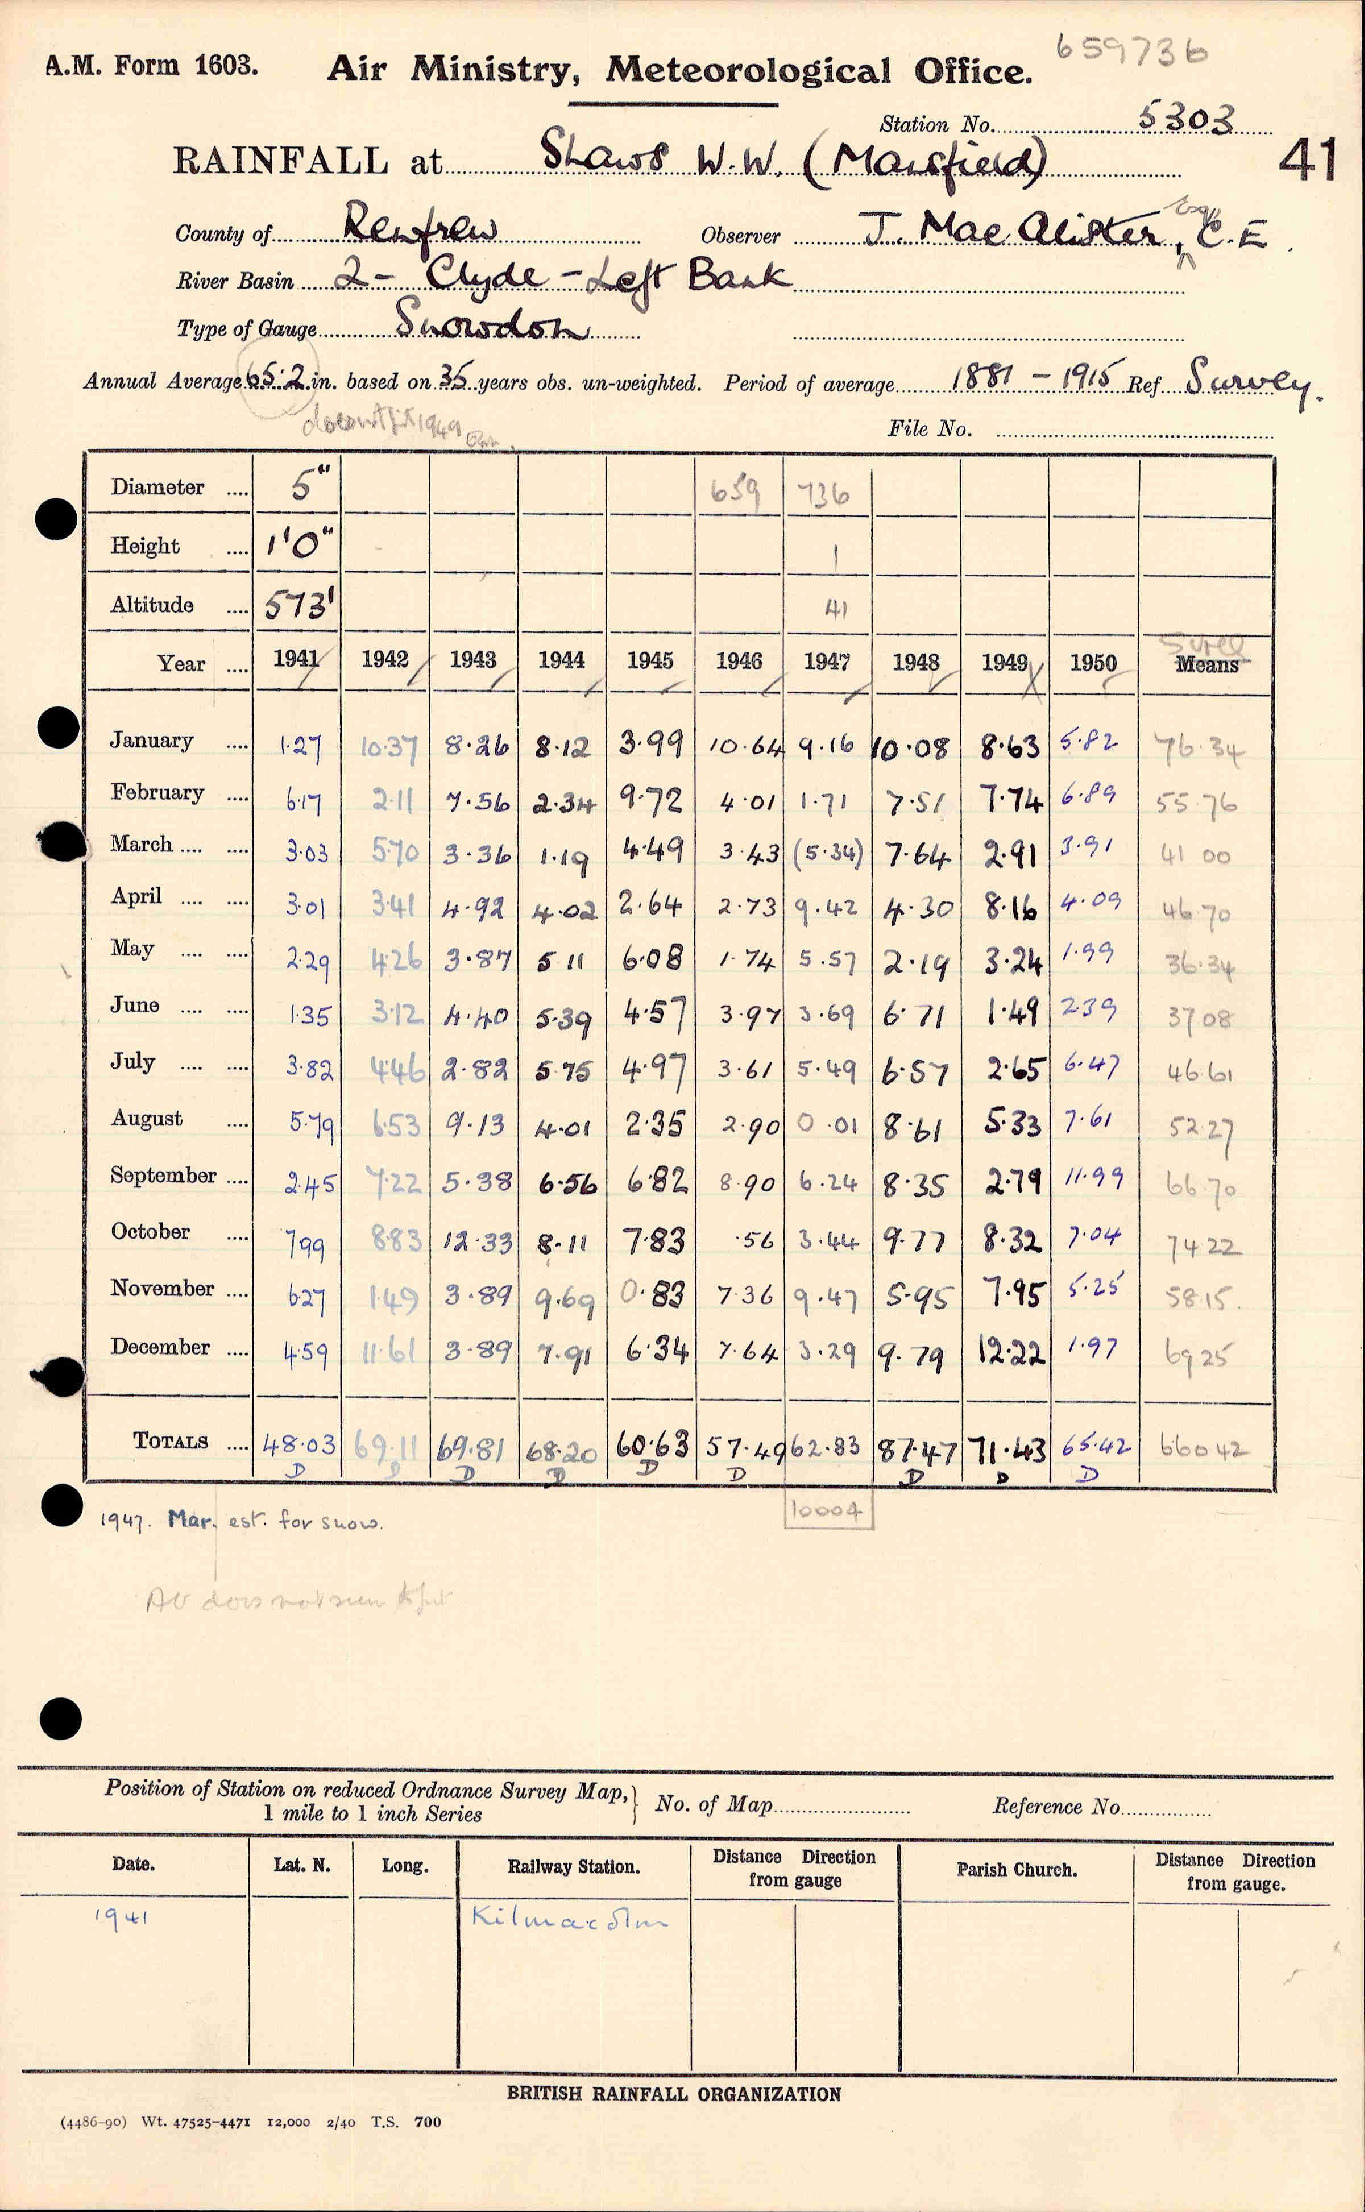 659736
A.M. Form 1603. Air Ministry, Meteorological Office.
Station No. 5303
RAINFALL at Shaws W.W. (Mansfield) 41
County of Renfrew Observer J. MacAlister, Esq. C.E.
River Basin 2 - Clyde - Left Bank
Type of Gauge Snowdon
Annual Average 65.2 in. based on 35 years obs. un-weighted. Period of average 1881 - 1915 Ref Survey.
1949
File No.
Diameter .... 5" 659 736
Height .... 1'0" 1
Altitude .... 573' 41
Year .... 1941 1942 1943 1944 1945 1946 1947 1948 1949 1950 Means
January .... 1.27 10.37 8.26 8.12 3.99 10.64 9.16 10.08 8.63 5.82 76.34
February .... 6.17 2.11 7.56 2.34 9.72 4.01 1.71 7.51 7.74 6.89 55.76
March .... .... 3.03 5.70 3.36 1.19 4.49 3.43 (5.34) 7.64 2.91 3.91 41 00
April .... .... 3.01 3.41 4.92 4.02 2.64 2.73 9.42 4.30 8.16 4.09 46.70
May .... .... 2.29 4.26 3.87 5 11 6.08 1.74 5.57 2.19 3.24 1.99 36.34
June .... .... 1.35 3.12 4.40 5.39 4.57 3.97 3.69 6.71 1.49 2.39 37 08
July .... .... 3.82 4.46 2.82 5.75 4.97 3.61 5.49 6.57 2.65 6.47 46.61
August .... 5.79 6.53 9.13 4.01 2.35 2.90 0.01 8.61 5.33 7.61 52.27
September .... 2.45 7.22 5.38 6.56 6.82 8.90 6.24 8.35 2.79 11.99 66.70
October .... 7.99 8.83 12.33 8.11 7.83 .56 3.44 9.77 8.32 7.04 74 22
November .... 6.27 1.49 3.89 9.69 0.83 7.36 9.47 5.95 7.95 5.25 58.15
December .... 4.59 11.61 3.89 7.91 6.34 7.64 3.29 9.79 12.22 1.97 69 25
TOTALS .... 48.03 69.11 69.81 68.20 60.63 57.49 62.83 87.47 71.43 65.42 660 42
D D D D D D D D D
10004
1947. Mar. est. for snow.
AV does not seem to fit
Position of Station on reduced Ordnance Survey Map,} No. of Map Reference No.
1 mile to 1 inch Series
Date. Lat. N. Long. Railway Station. Distance Direction from gauge Parish Church. Distance Direction from gauge.
1941 Kilmacolm
BRITISH RAINFALL ORGANIZATION
(4486-90) Wt. 47525-4471 12,000 2/40 T.S. 700